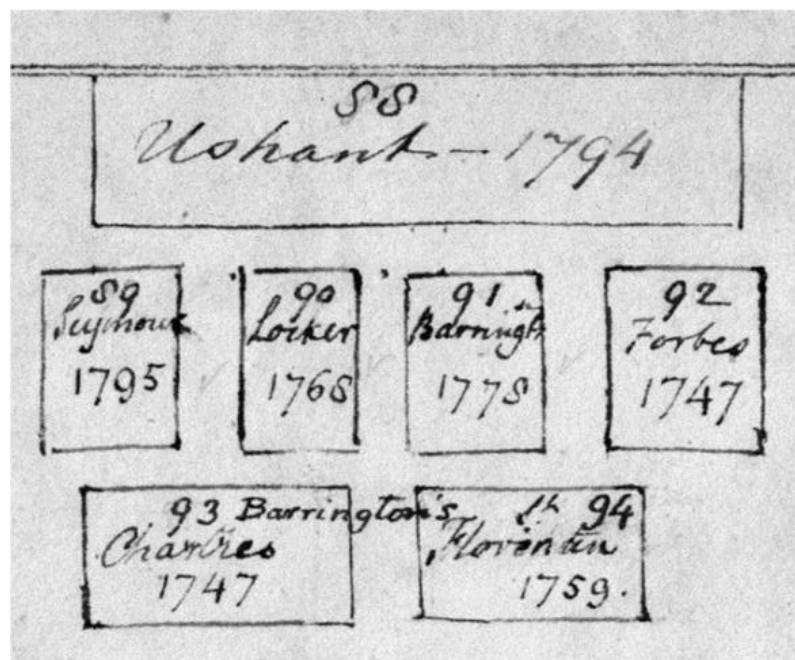 88
Ushant - 1794
89
Seymour
1795
90
Locker
1768
91
Barringtn
1778
92
Forbes
1747
93 Barrington's
Chartres
1747
St 94
Florentin
1759.